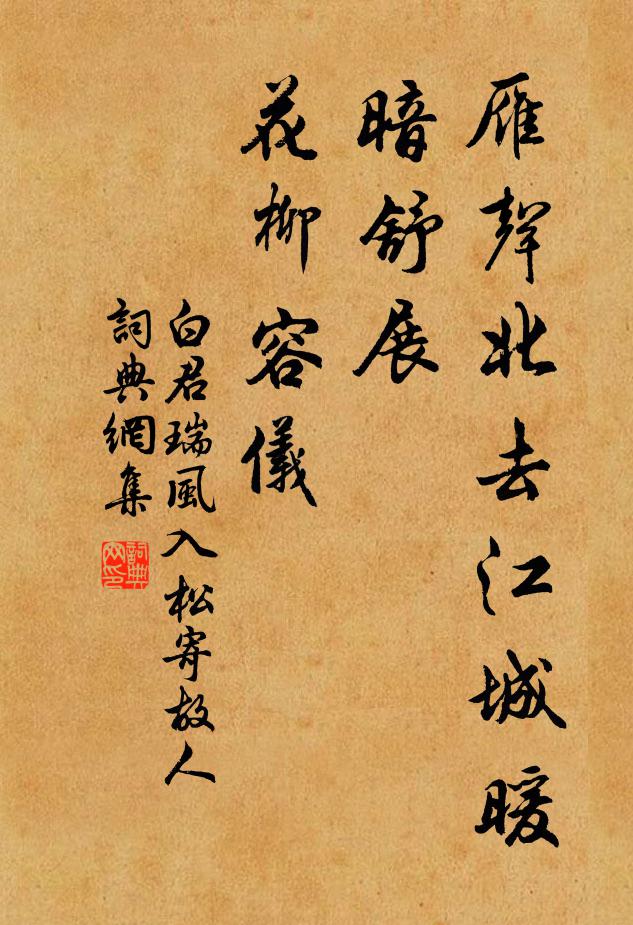 雁聲北去江城暖
暗舒展
花柳容儀
白君瑞風入松寄故人
詞典網集
詞典网印